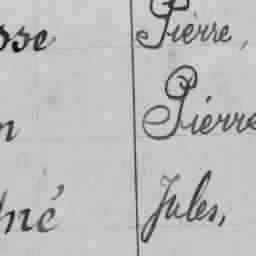 sse Pierre,
n Pierre
né Jules,